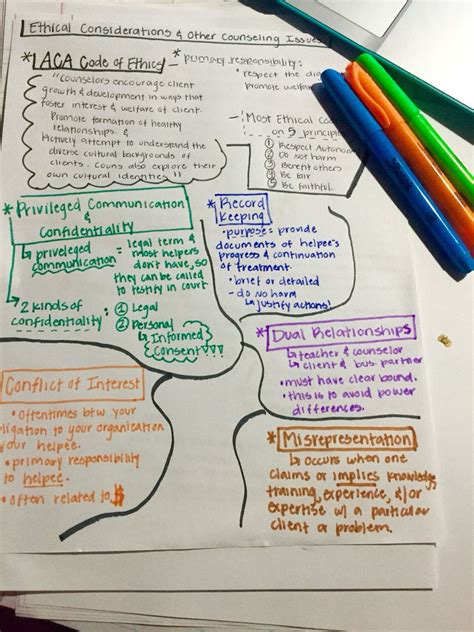 Ethical Considerations & Other Counseling Issues
* ACA Code of Ethics
- primary responsibility:
• respect the
promote welf
"Counselors encourage client
growth & development in ways that
foster interest & welfare of client.
Promote formation of healthy
relationships. &
Actively attempt to understand the
diverse cultural backgrounds of
clients. Couns also explore their
own cultural identities"
- Most Ethical Co
on 5 principle
① Respect Autonom
② Do not harm
③ Benefit others
④ Be fair
⑤ Be faithful.
* Privileged Communication
&
Confidentiality
↳ priveleged
communication =
legal term &
most helpers
don't have, so
they can be called
to testify in court
↳ 2 kinds of
confidentiality:
① Legal
② Personal
↳ Informed
Consent!!!
* Record
Keeping
• purpose = provide
documents of helpee's
progress & continuation
of treatment.
• brief or detailed
- do no harm
↳ justify actions!
* Dual Relationships
↳ teacher & counselor
↳ client & bus. partner
• must have clear bound.
• this is to avoid power
differences.
Conflict of Interest
• oftentimes btw your
ligation to your organization
your helpee.
• primary responsibility
to helpee.
• often related to $
* Misrepresentation
↳ occurs when one
claims or implies knowledge,
training, experience, &/or
expertise w/ a particular
client or problem.